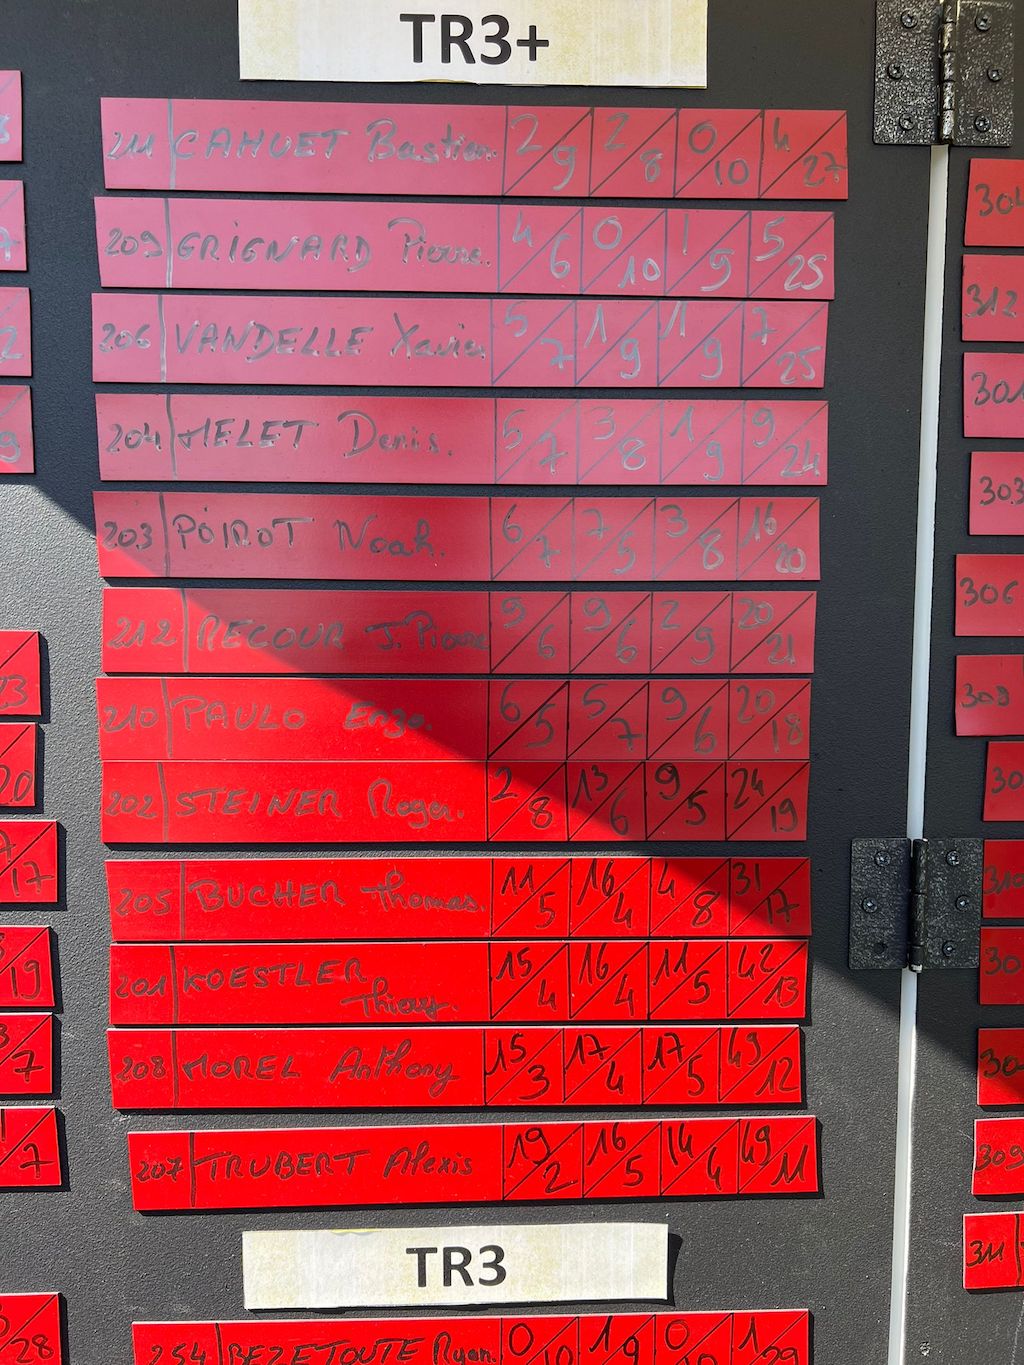 TR3+
211 CAHUET Bastien. 2/9 2/8 0/10 4/27
209 GRIGNARD Pierre. 4/6 0/10 1/9 5/25
206 VANDELLE Xavier 5/7 1/9 1/9 7/25
204 MELET Denis. 5/7 3/8 1/9 9/24
203 POIROT Noah. 6/7 7/5 3/8 16/20
212 RECOUR J. Pierre 9/6 9/6 2/9 20/21
210 PAULO Enzo. 6/5 5/7 9/6 20/18
202 STEINER Roger. 2/8 13/6 9/5 24/19
205 BUCHER Thomas. 11/5 16/4 4/8 31/17
201 KOESTLER Thierry. 15/4 16/4 11/5 42/13
208 MOREL Anthony 15/3 17/4 17/5 49/12
207 TRUBERT Alexis 19/2 16/5 14/4 49/11
TR3
254 BEZETOUTE Ryan. 0/10 1/9 0/10 1/29
304
312
301
303
306
309
311